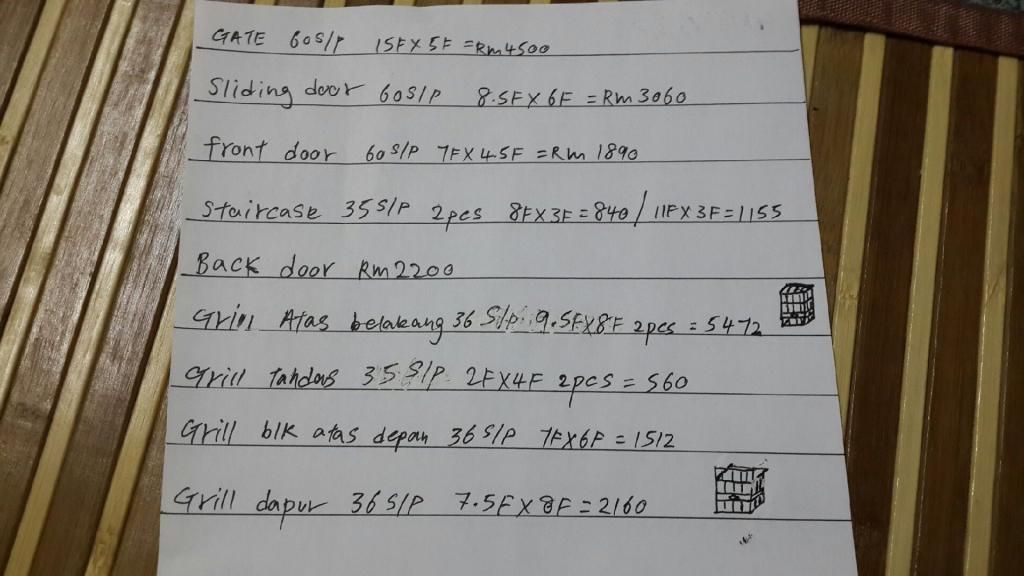 GATE 60 S/P 15F X 5F = Rm 4500
Sliding door 60 S/P 8.5F X 6F = Rm 3060
front door 60 S/P 7F X 4.5F = Rm 1890
Staircase 35 S/P 2pcs 8F X 3F = 840 / 11F X 3F = 1155
Back door Rm 2200
Grill Atas belakang 36 S/P 9.5F X 8F 2pcs = 5472
Grill tandas 35 S/P 2F X 4F 2pcs = 560
Grill blk atas depan 36 S/P 7F X 6F = 1512
Grill dapur 36 S/P 7.5F X 8F = 2160